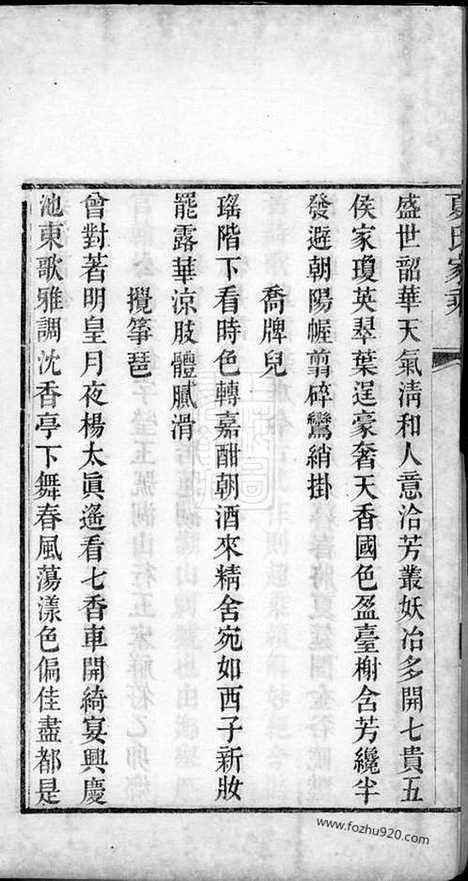 夏氏家乘
盛世韶華天氣淸和人意洽芳叢妖冶多開七貴五
侯家瓊英翠葉逞豪奢天香國色盈臺榭含芳纔半
發避朝陽幄翦碎鸞綃掛
喬牌兒
瑤階下看時色轉嘉酣朝酒來精舍宛如西子新妝
罷露華涼肢體膩滑
攪箏琶
曾對著明皇月夜楊太眞遙看七香車開綺宴興慶
池東歌雅調沈香亭下舞春風蕩漾色偏佳盡都是
www.fozhu920.com